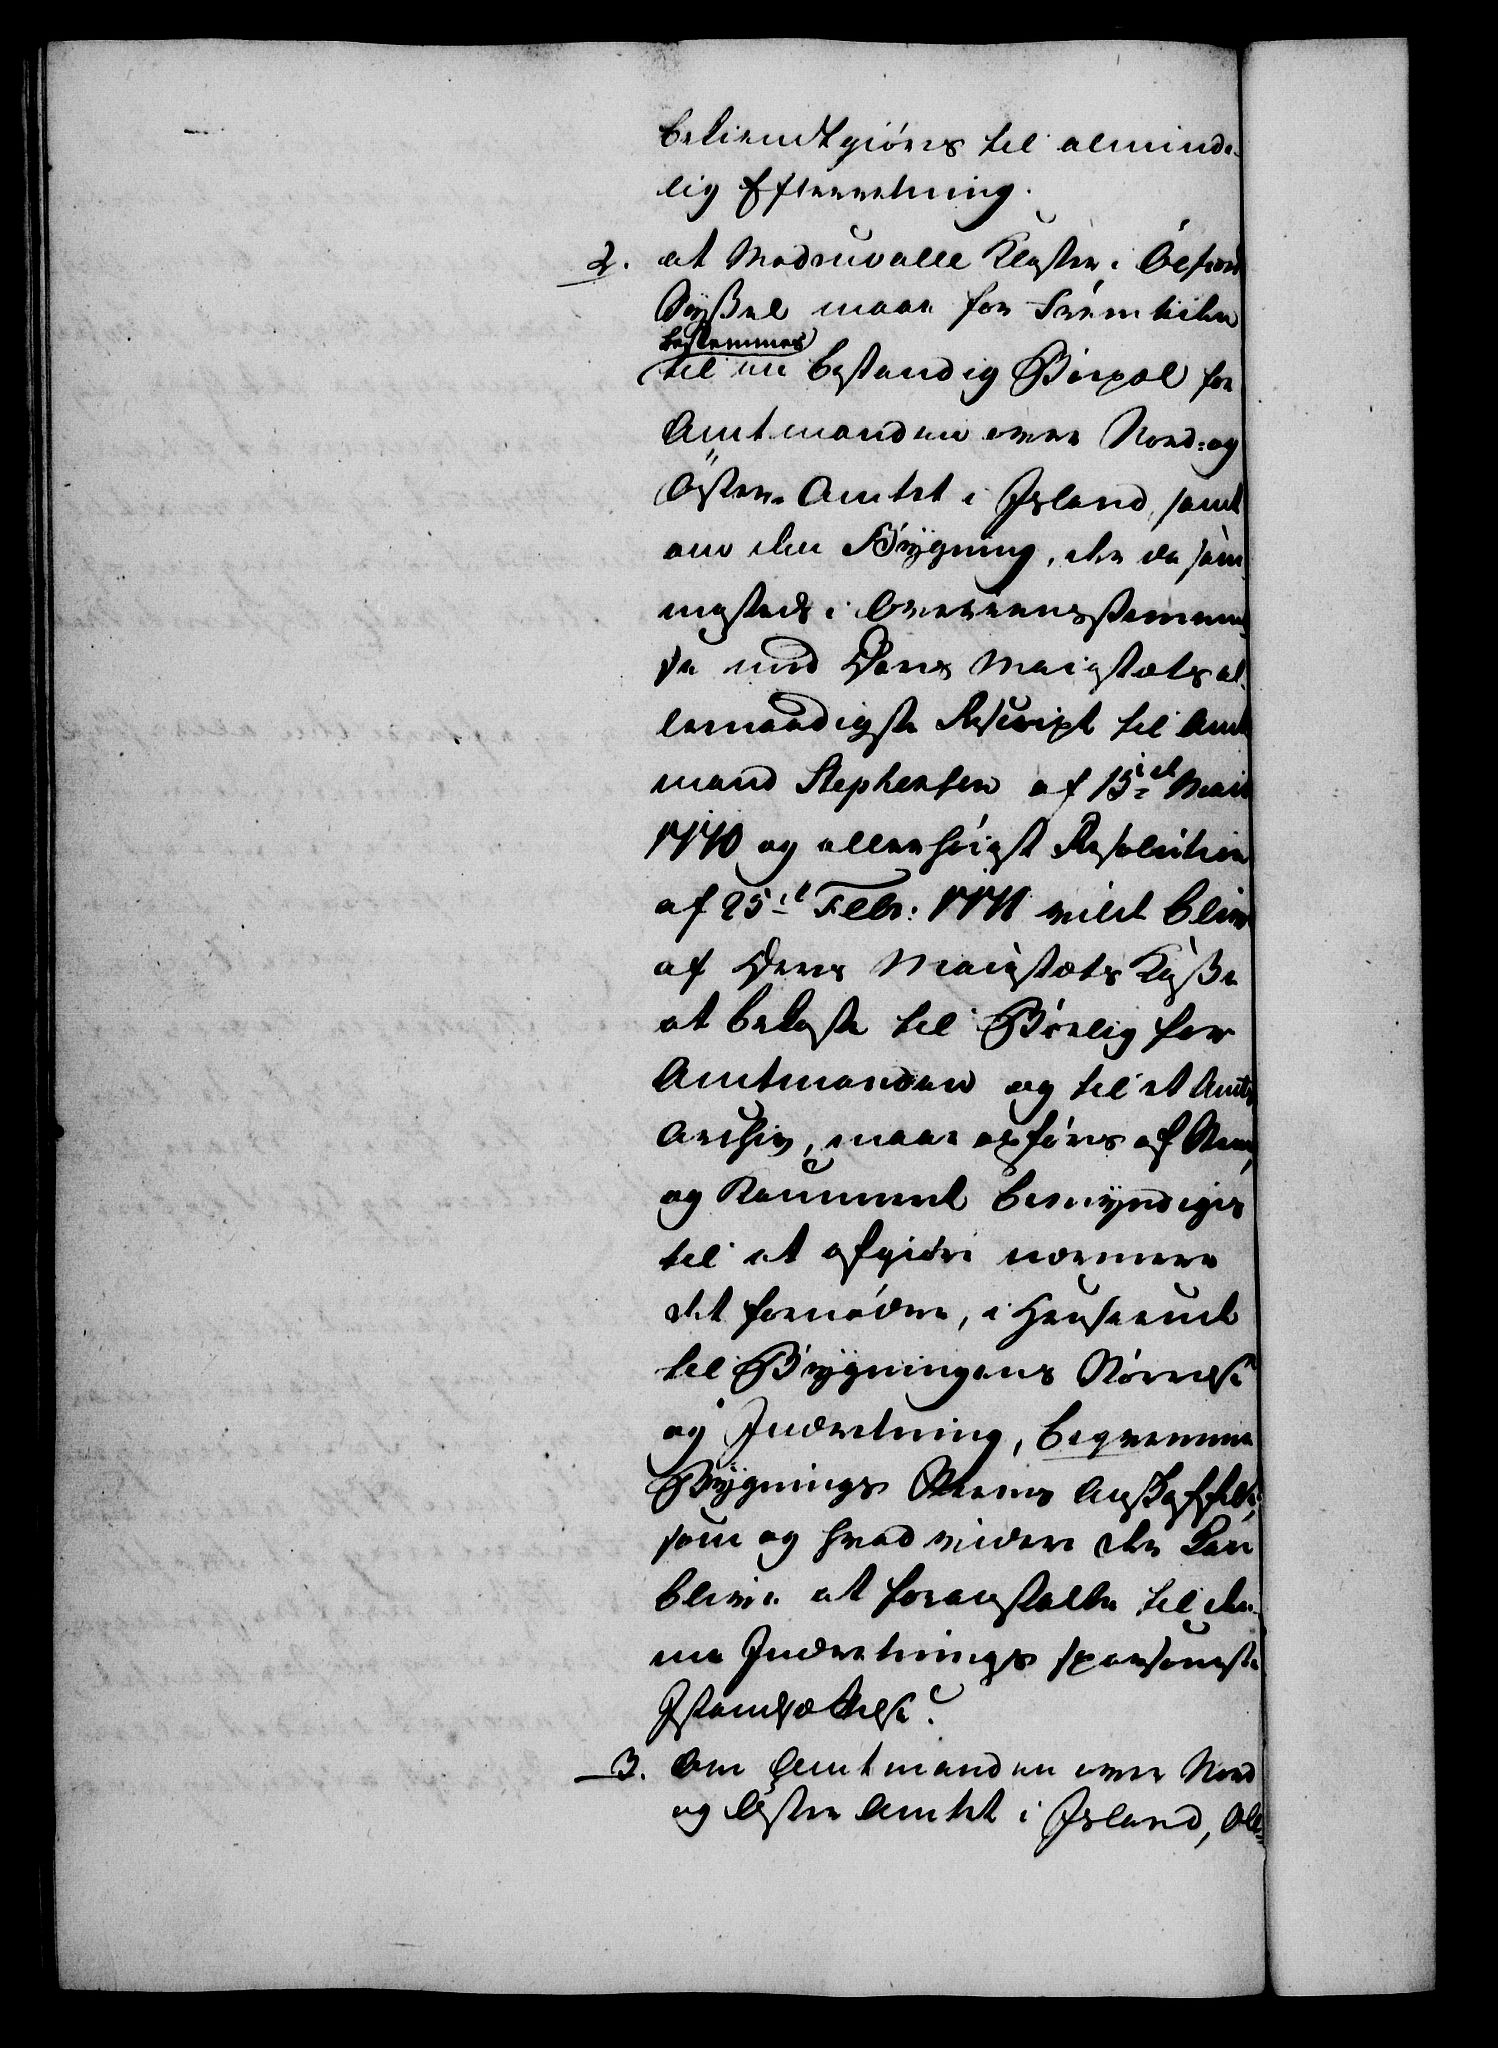 bekiendtgiöres til alminde-
lig Efterretning.
2. at Madruvalle Kloster i Öefiord
Syssel maae for Fremtiden
bestemmes
til en bestandig Böepæl for
Amtmanden over Nord- og
Öster-Amtet i Island, samt
om den Bÿgning, der da sam-
mesteds i Overeensstemmel-
se med Deres Majestæts al-
lernaadigste Rescript til Amt-
mand Stephensen af 15de Maii
1770 og allerhöieste Resolution
af 25de Febr: 1771 vilde blive
af Deres Majestæts Kasse
at bekoste til Böelig for
Amtmanden og til et Amts
Archiv, maae opföres af Steen,
og Kammeret bemÿndiges
til at afgiöre nærmere
det fornödne, i Henseende
til Bÿgningens Störrelse
og Indretning, beqvemme
Bÿgnings Steens Anskaffelse,
som og hvad videre der kan
blive at foranstalte til den-
ne Indretnings sparsomste
Istandsættelse?
3. Om Amtmanden over Nord
og Öster Amtet i Island,